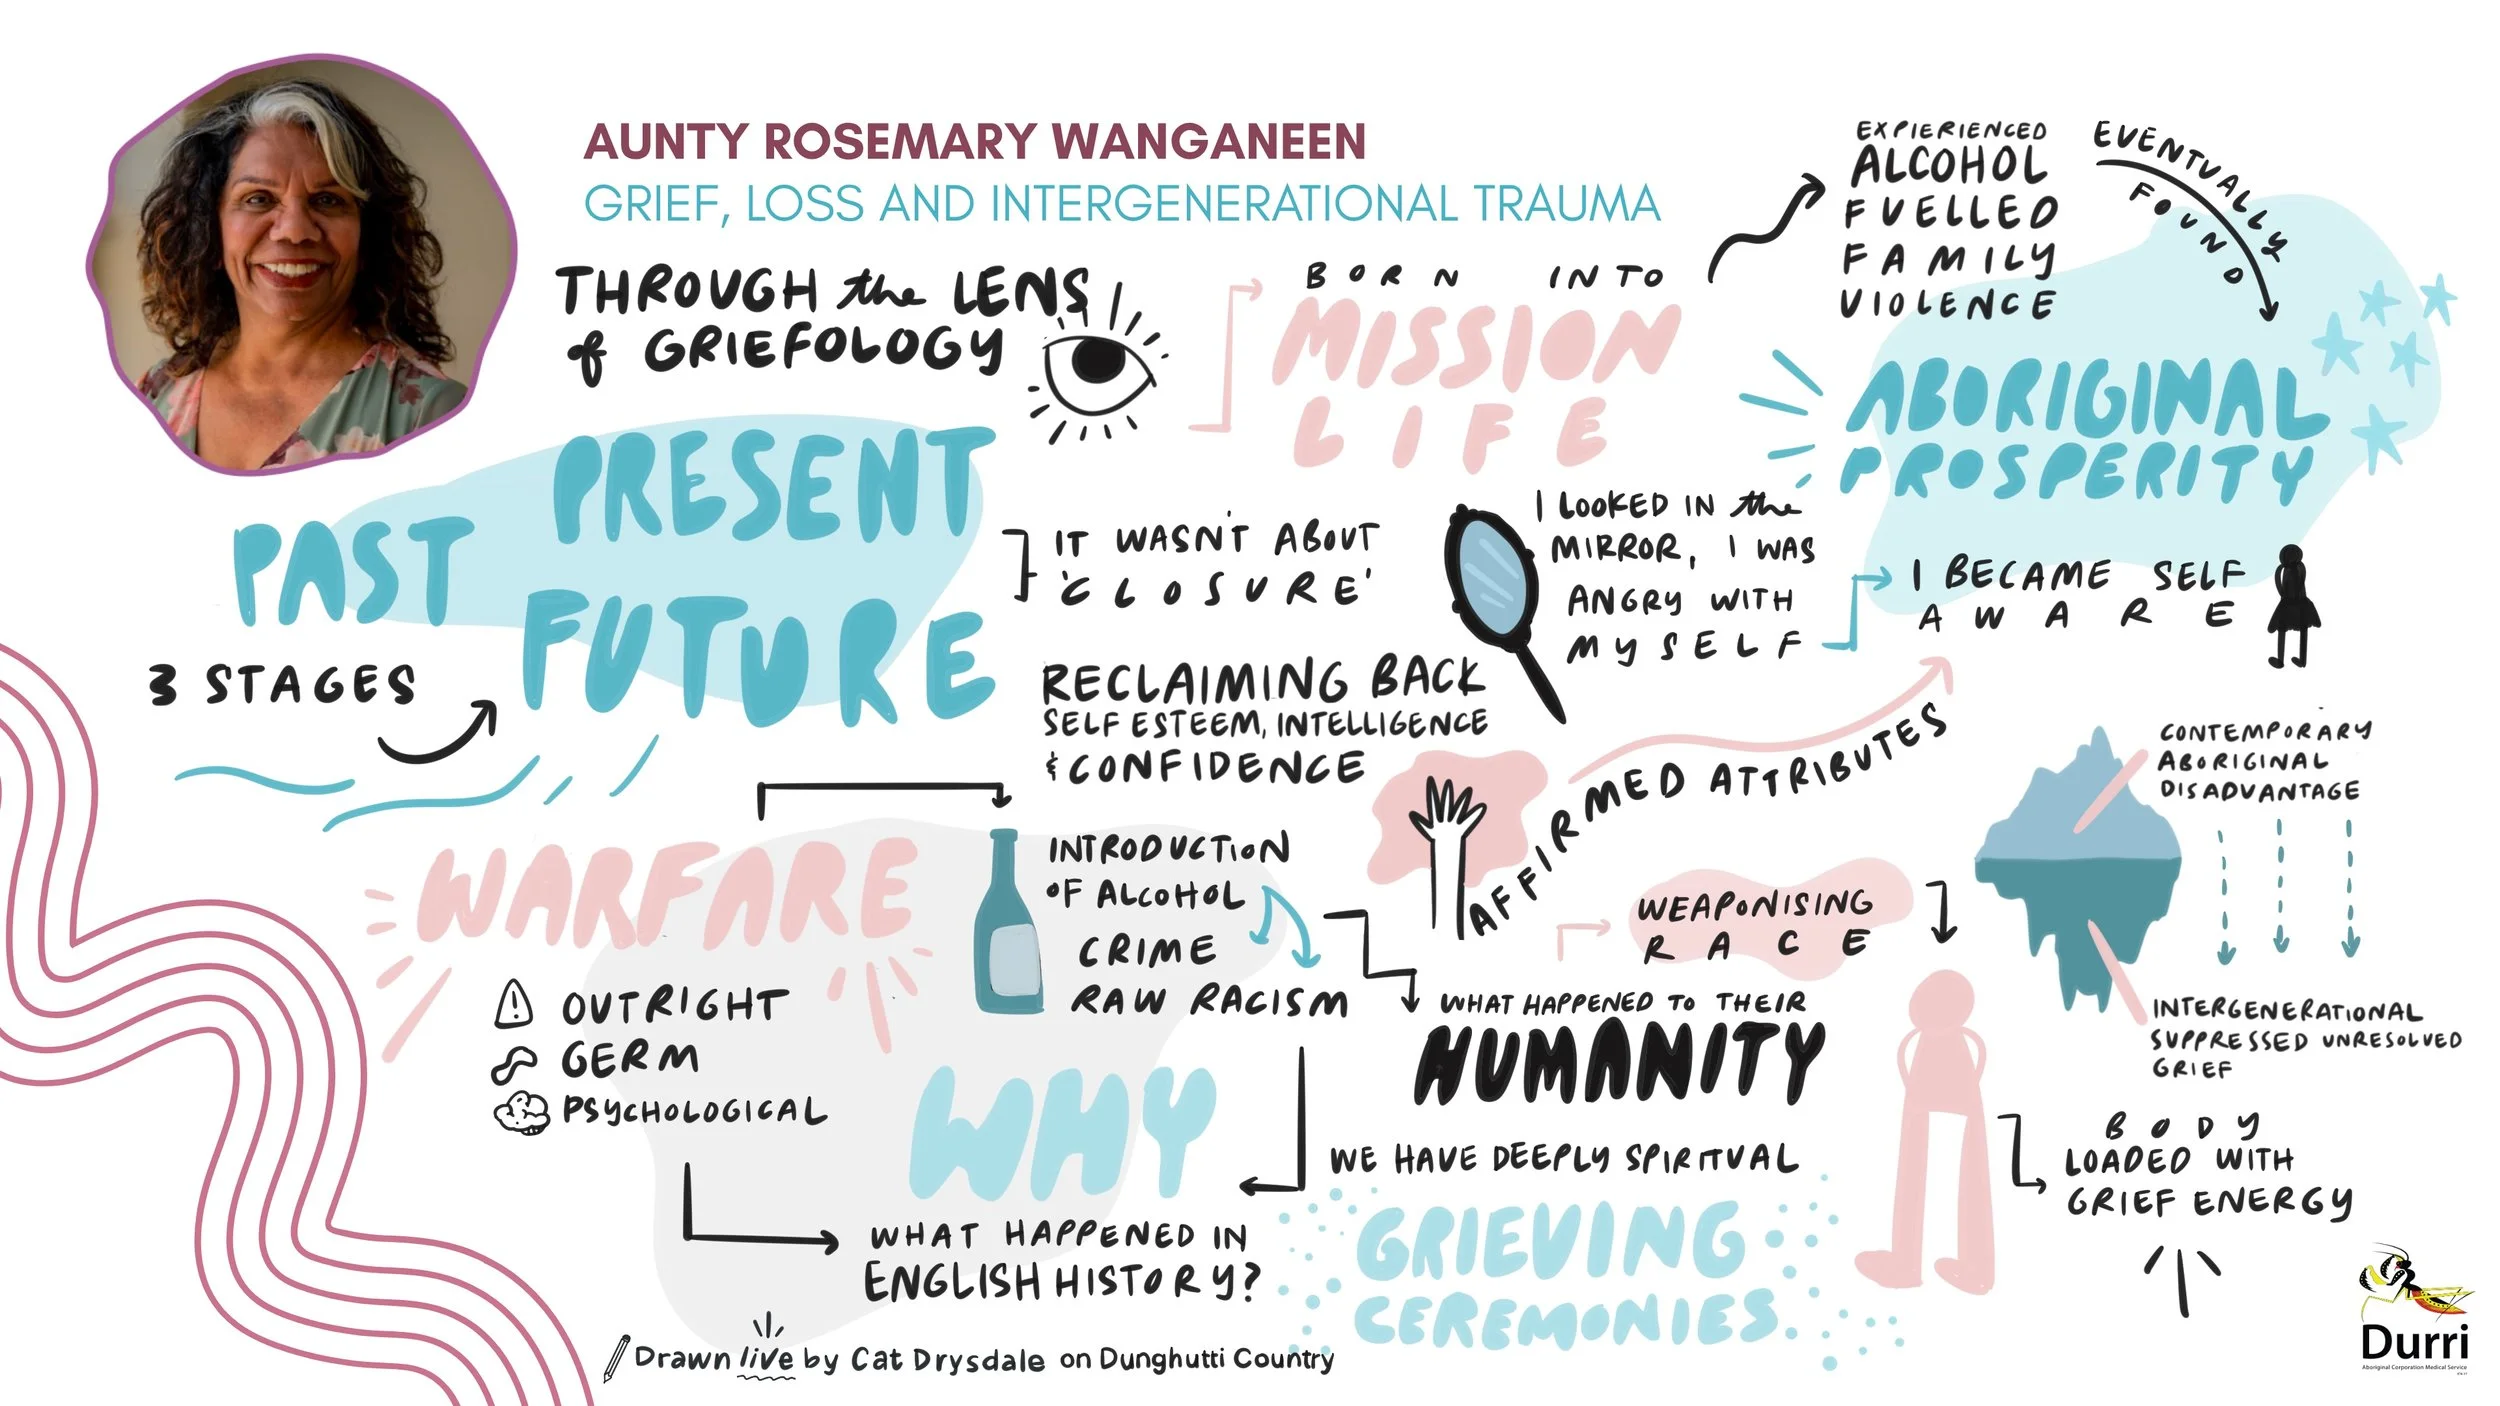 AUNTY ROSEMARY WANGANEEN
GRIEF, LOSS AND INTERGENERATIONAL TRAUMA
THROUGH the LENS
of GRIEFOLOGY
PAST
PRESENT
FUTURE
3 STAGES
IT WASN'T ABOUT
'CLOSURE'
BORN INTO
MISSION
LIFE
EXPIERIENCED
ALCOHOL
FUELLED
FAMILY
VIOLENCE
EVENTUALLY
FOUND
ABORIGINAL
PROSPERITY
I LOOKED IN the
MIRROR, I WAS
ANGRY WITH
MYSELF
I BECAME SELF
AWARE
RECLAIMING BACK
SELF ESTEEM, INTELLIGENCE
& CONFIDENCE
AFFIRMED ATTRIBUTES
WARFARE
OUTRIGHT
GERM
PSYCHOLOGICAL
INTRODUCTION
OF ALCOHOL
CRIME
RAW RACISM
WHY
WHAT HAPPENED IN
ENGLISH HISTORY?
WEAPONISING
RACE
WHAT HAPPENED TO THEIR
HUMANITY
WE HAVE DEEPLY SPIRITUAL
GRIEVING
CEREMONIES.
CONTEMPORARY
ABORIGINAL
DISADVANTAGE
INTERGENERATIONAL
SUPPRESSED UNRESOLVED
GRIEF
BODY
LOADED WITH
GRIEF ENERGY
Drawn live by Cat Drysdale on Dunghutti Country
Durri
Aboriginal Corporation Medical Service